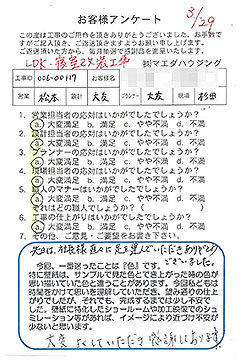 お客様アンケート
3/29
この度は工事のご用命を頂きありがとうございました。お手数で
すがご記入頂き、ご返送頂きますようお願い申し上げます。
ご返送頂いた方から、毎月抽選で感謝品を進呈いたします。
LDK・寝室改装工事
㈱マエダハウジング
工事NO 006-00117 お客様名
営業 松本 設計 大友 プランナー 大友 現場 杉田
1. 営業担当者の応対はいかがでしたでしょうか？
a. 大変満足 b. 満足 c. やや不満 d. 不満
2. 設計担当者の応対はいかがでしたでしょうか？
a. 大変満足 b. 満足 c. やや不満 d. 不満
3. プランナーの応対はいかがでしたでしょうか？
a. 大変満足 b. 満足 c. やや不満 d. 不満
4. 現場担当者の応対はいかがでしたでしょうか？
a. 大変満足 b. 満足 c. やや不満 d. 不満
5. 職人のマナーはいかがでしたでしょうか？
a. 大変満足 b. 満足 c. やや不満 d. 不満
それはどの職人でしょうか？（ ）
6. 工事の仕上がりはいかがでしたでしょうか？
a. 大変満足 b. 満足 c. やや不満 d. 不満
7. その他、ご意見・ご要望をお書き下さい。
今回、一番迷ったことは『色』です。
特に壁紙は、サンプルで見た色とでき上がった時の色が
思い描いていた色と違うことがあります。今回私どもは
時間をかけて思いを理解していただき、望み通りの仕上
がりでしたが、それでも、完成するまでは少し不安で
した。壁紙に特化したショールームや加工映像でのシュ
ミレーション等があれば、イメージにより近づけ不安が
少ないと思います。
大変 よくしていただき 感謝しております